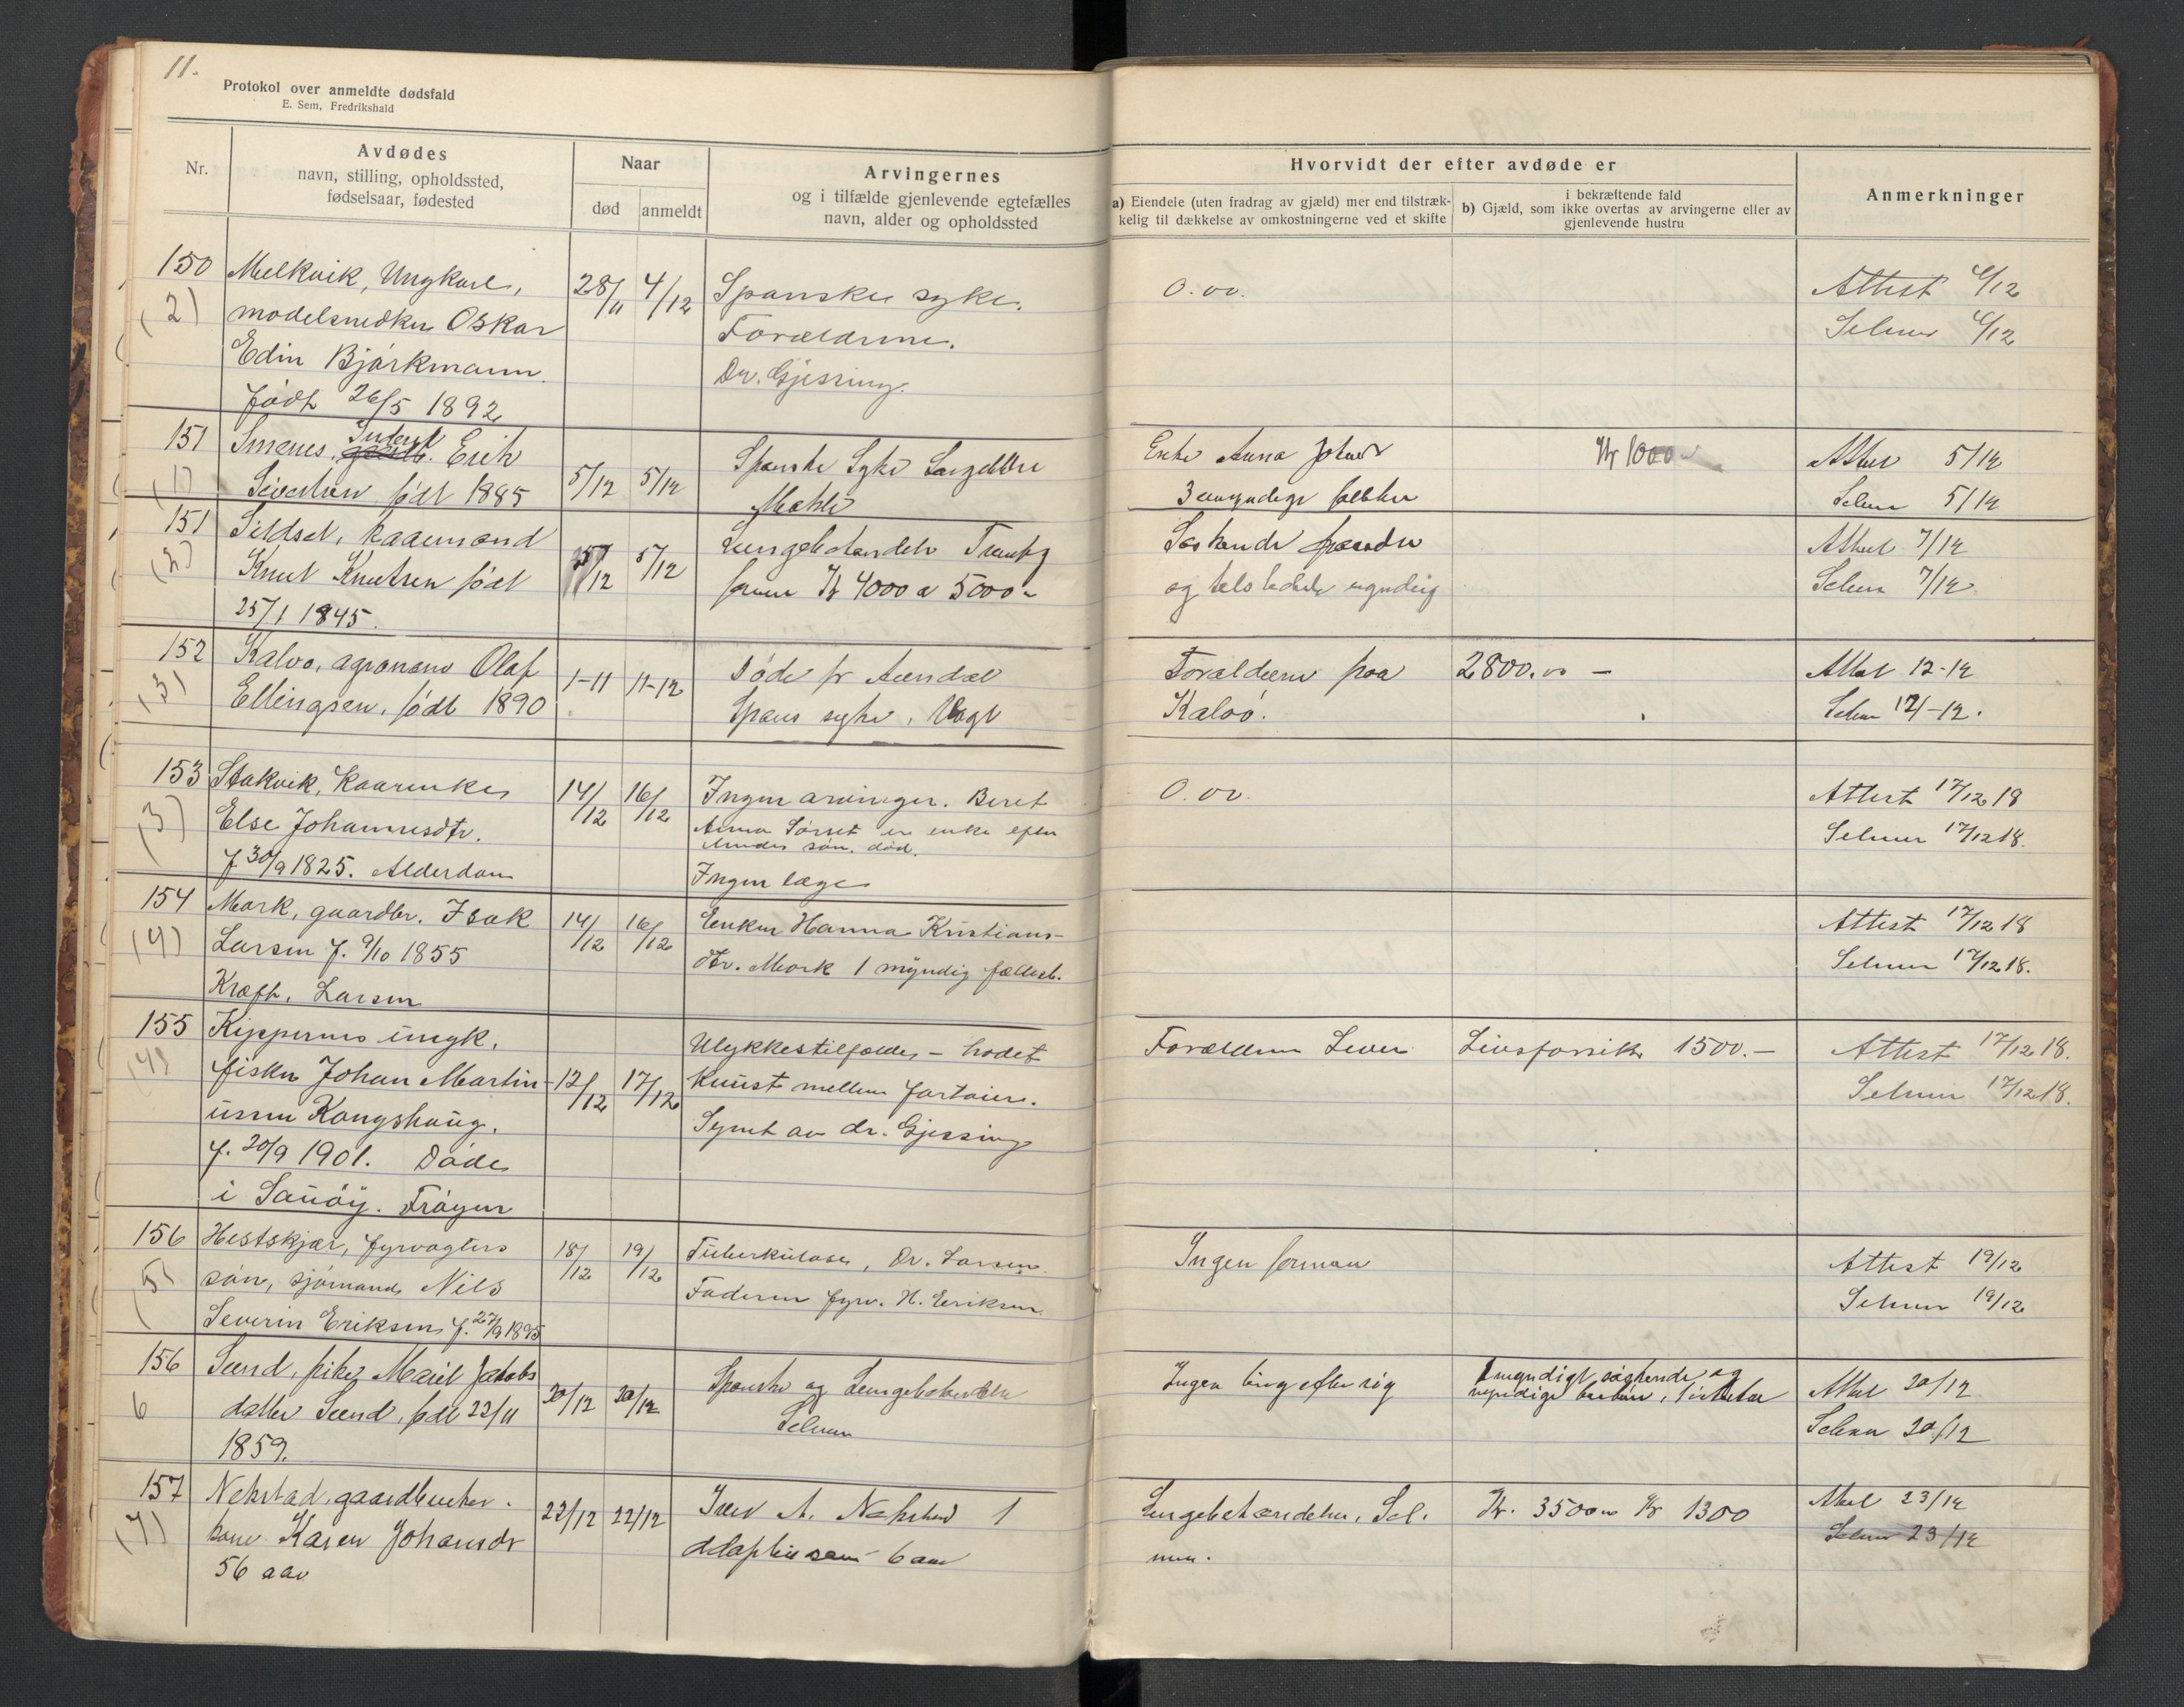 11.
Protokol over anmeldte dødsfald
E. Sem, Fredrikshald
Nr.
Avdødes
navn, stilling, opholdssted,
fødselsaar, fødested
Naar
død anmeldt
Arvingernes
og i tilfælde gjenlevende egtefælles
navn, alder og opholdssted
Hvorvidt der efter avdøde er
a) Eiendele (uten fradrag av gjæld) mer end tilstræk-
kelig til dækkelse av omkostningerne ved et skifte
i bekræftende fald
b) Gjæld, som ikke overtas av arvingerne eller av
gjenlevende hustru
Anmerkninger
150 Melkvik, Ungkarl, 28/11 4/12 Spanske syke. O. oo. Attest 6/12
(2) modelsnedker Oskar Forældrene. Selmer 6/12
Edin Bjørkmann. Dr. Gjessing.
Født 26/5 1892
151 Smenes, Erik 5/12 5/12 Spanske Syke Enke Anna Kr 1000 Attest 5/12
(1) Sivertsen født 1885 3 umyndige Selmer 5/12
151 Sildset, kaarmand 5/12 5/12 Lungebetændelse Søskende Attest 7/12
(2) Knut Knutsen født Kr 4000 a 5000 og Selmer 7/12
25/1 1845.
152 Kalvø, agronom Olaf 1-11 11-12 Døde Forældrene paa 2800.00 — Attest 12-12
(3) Ellingsen, født 1890 Spans syke, Kalvø. Selmer 12/-12.
153 Stakvik, Kaarenke 14/12 16/12 Ingen arvinger. Beret O. oo. Attest 17/12 18
(3) Else Johannesdtr. Anna Sørset er enke efter Selmer 17/12 18.
søn. død.
f 30/9 1825. Alderdom Ingen læge
154 Mork, gaardbr. Isak 14/12 16/12 Enken Hanna Kristians- Attest 17/12 18
(4) Larsen f. 9/10 1855 dtr. Mork 1 myndig fællesb. Selmer 17/12 18.
Kræft. Larsen
155 Kippernes ungk. Ulykkestilfælde – hodet Forældrene Lever Livsforsikr 1500.— Attest 17/12 18.
(4) fisker Johan Martin- 12/12 17/12 knust mellem fartøier. Selmer 17/12 18.
ussen Kongshaug. Synet av dr. Gjessing
f. 20/9 1901. Døde
i Sauøy. Frøyen
156 Hestskjær, fyrvogters 18/12 19/12 Tuberkulose, Dr. Larsen. Ingen formue Attest 19/12
(5) søn, sjømand Nils Faderen fyrv. H. Eriksen. Selmer 19/12
Severin Eriksen f. 27/9 1895
156 Sund, pike Marit Jakobs 20/12 20/12 Spanske og Lungebetændelse Ingen ting efter sig umyndigt søskende og Attest 20/12
6 datter Sund, født 22/11 Selmer Selmer 20/12
1859.
157 Nekstad, gaardbruker 22/12 22/12 Iver A. Nekstad 1 Lungebetændelse, Sel- Kr. 3500 Kr 1300 Attest 23/12
(7) kone Karen Johansdr adoptivsøn 6 aar mer. Selmer 23/12
56 aar